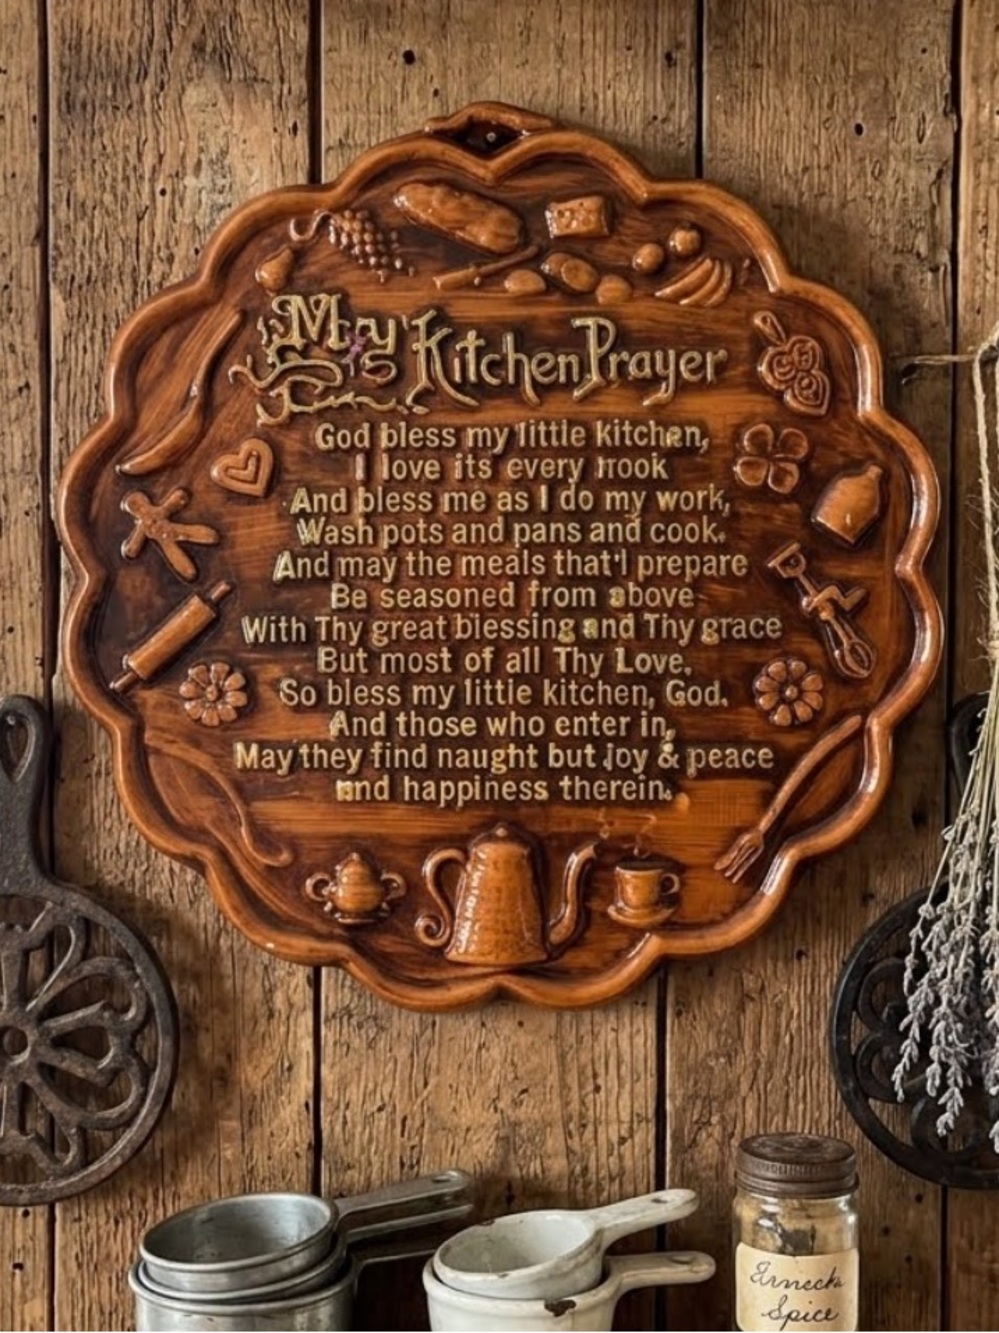 My Kitchen Prayer
God bless my little kitchen,
I love its every nook
And bless me as I do my work,
Wash pots and pans and cook.
And may the meals that I prepare
Be seasoned from above
With Thy great blessing and Thy grace
But most of all Thy Love.
So bless my little kitchen, God.
And those who enter in,
May they find naught but Joy & peace
and happiness therein.
Spice